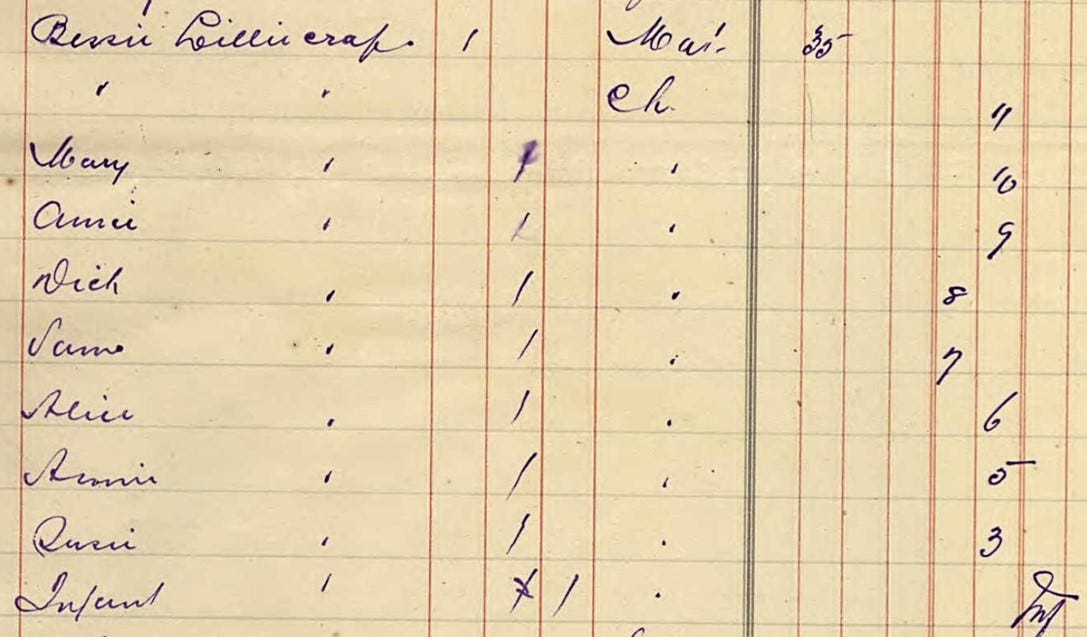 Bessie Lillicrap. 1 Mar. 35
" " Ch. 11
Mary " 1 " 10
" 1 " 9
Dick " 1 " 8
" 1 " 7
Alice " 1 " 6
" 1 " 5
" 1 " 3
Infant " 1 " Inf